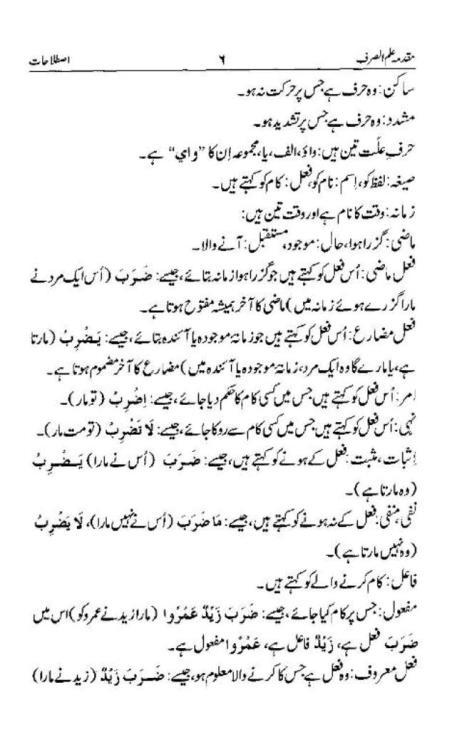 مقدمہ علم الصرف ۶ اصطلاحات
ساکن: وہ حرف ہے جس پر حرکت نہ ہو۔
مشدد: وہ حرف ہے جس پر تشدید ہو۔
حرفِ علّت تین ہیں: واؤ، الف، یا، مجموعہ اِن کا "وای" ہے۔
صیغہ: لفظ کو، اِسم: نام کو، فعل: کام کو کہتے ہیں۔
زمانہ: وقت کا نام ہے اور وقت تین ہیں:
ماضی: گزرا ہوا، حال: موجود، مستقبل: آنے والا۔
فعل ماضی: اُس فعل کو کہتے ہیں جو گزرا ہوا زمانہ بتائے، جیسے: ضَرَبَ (اُس ایک مرد نے
مارا گزرے ہوئے زمانہ میں) ماضی کا آخر ہمیشہ مفتوح ہوتا ہے۔
فعل مضارع: اُس فعل کو کہتے ہیں جو زمانۂ موجودہ یا آئندہ بتائے، جیسے: یَضْرِبُ (مارتا
ہے، یا مارے گا وہ ایک مرد، زمانۂ موجودہ یا آئندہ میں) مضارع کا آخر مضموم ہوتا ہے۔
امر: اُس فعل کو کہتے ہیں جس میں کسی کام کا حکم دیا جائے، جیسے: اِضْرِبْ (تو مار)۔
نہی: اُس فعل کو کہتے ہیں جس میں کسی کام سے روکا جائے، جیسے: لَا تَضْرِبْ (تو مت مار)۔
اِثبات، مثبت: فعل کے ہونے کو کہتے ہیں، جیسے: ضَرَبَ (اُس نے مارا) یَضْرِبُ
(وہ مارتا ہے)۔
نفی، منفی: فعل کے نہ ہونے کو کہتے ہیں، جیسے: مَا ضَرَبَ (اُس نے نہیں مارا)، لَا یَضْرِبُ
(وہ نہیں مارتا ہے)۔
فاعل: کام کرنے والے کو کہتے ہیں۔
مفعول: جس پر کام کیا جائے، جیسے: ضَرَبَ زَیْدٌ عَمْرُوا (مارا زید نے عمرو کو) اس میں
ضَرَبَ فعل ہے، زَیْدٌ فاعل ہے، عَمْرُوا مفعول ہے۔
فعل معروف: وہ فعل ہے جس کا کرنے والا معلوم ہو، جیسے: ضَرَبَ زَیْدٌ (زید نے مارا)